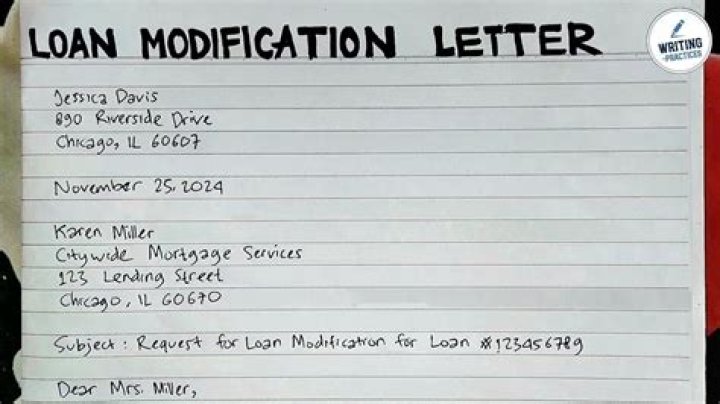 LOAN MODIFICATION LETTER
WRITING
PRACTICES
Jessica Davis
890 Riverside Drive
Chicago, IL 60607
November 25, 2024
Karen Miller
Citywide Mortgage Services
123 Lending Street
Chicago, IL 60670
Subject: Request for Loan Modification for Loan #123456789
Dear Mrs. Miller,